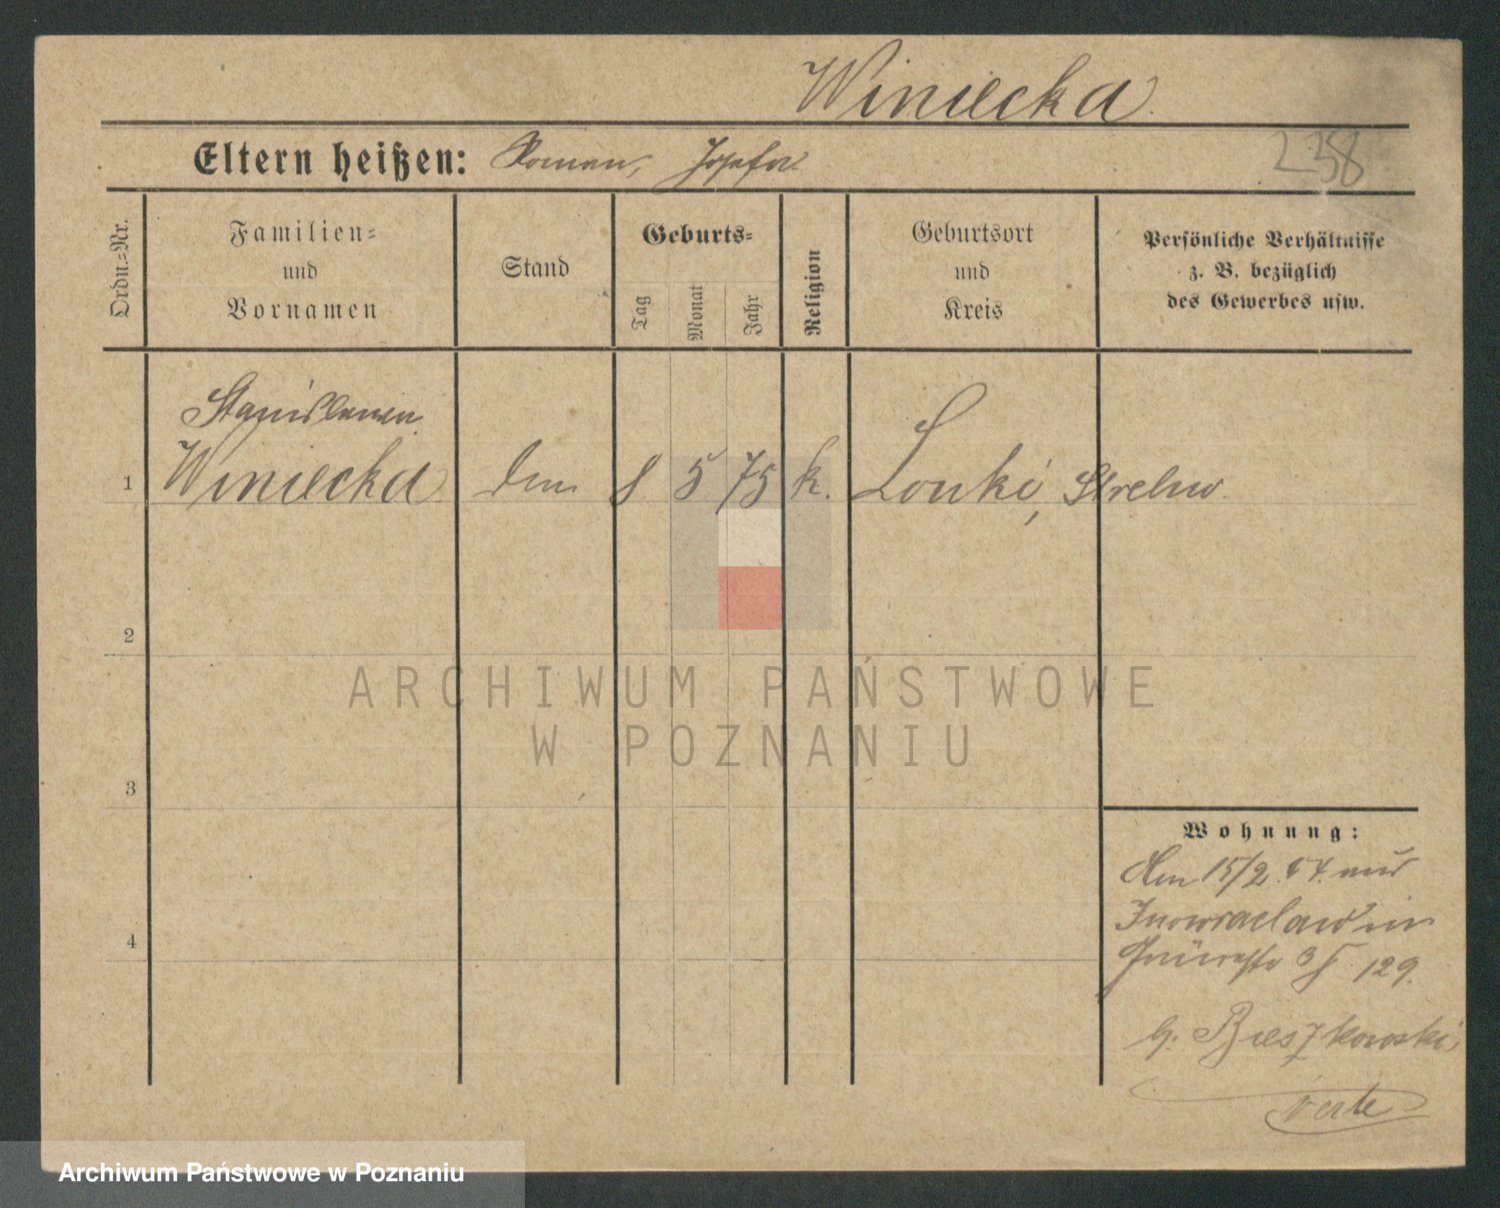 Winiecka.
238
Eltern heißen: Roman, Josefa
Ordn.=Nr.
Familien=
und
Vornamen
Stand
Geburts=
Tag
Monat
Jahr
Religion
Geburtsort
und
Kreis
Persönliche Verhältnisse
z. B. bezüglich
des Gewerbes usw.
Stanislawa
1 Winiecka 8 5 75 k. Lonki, Strelno.
2
3
4
ARCHIWUM PAŃSTWOWE
W POZNANIU
Wohnung:
Am 15/2. aus
Inowraclaw in
129.
b. Bieszkowski
verte
Archiwum Państwowe w Poznaniu